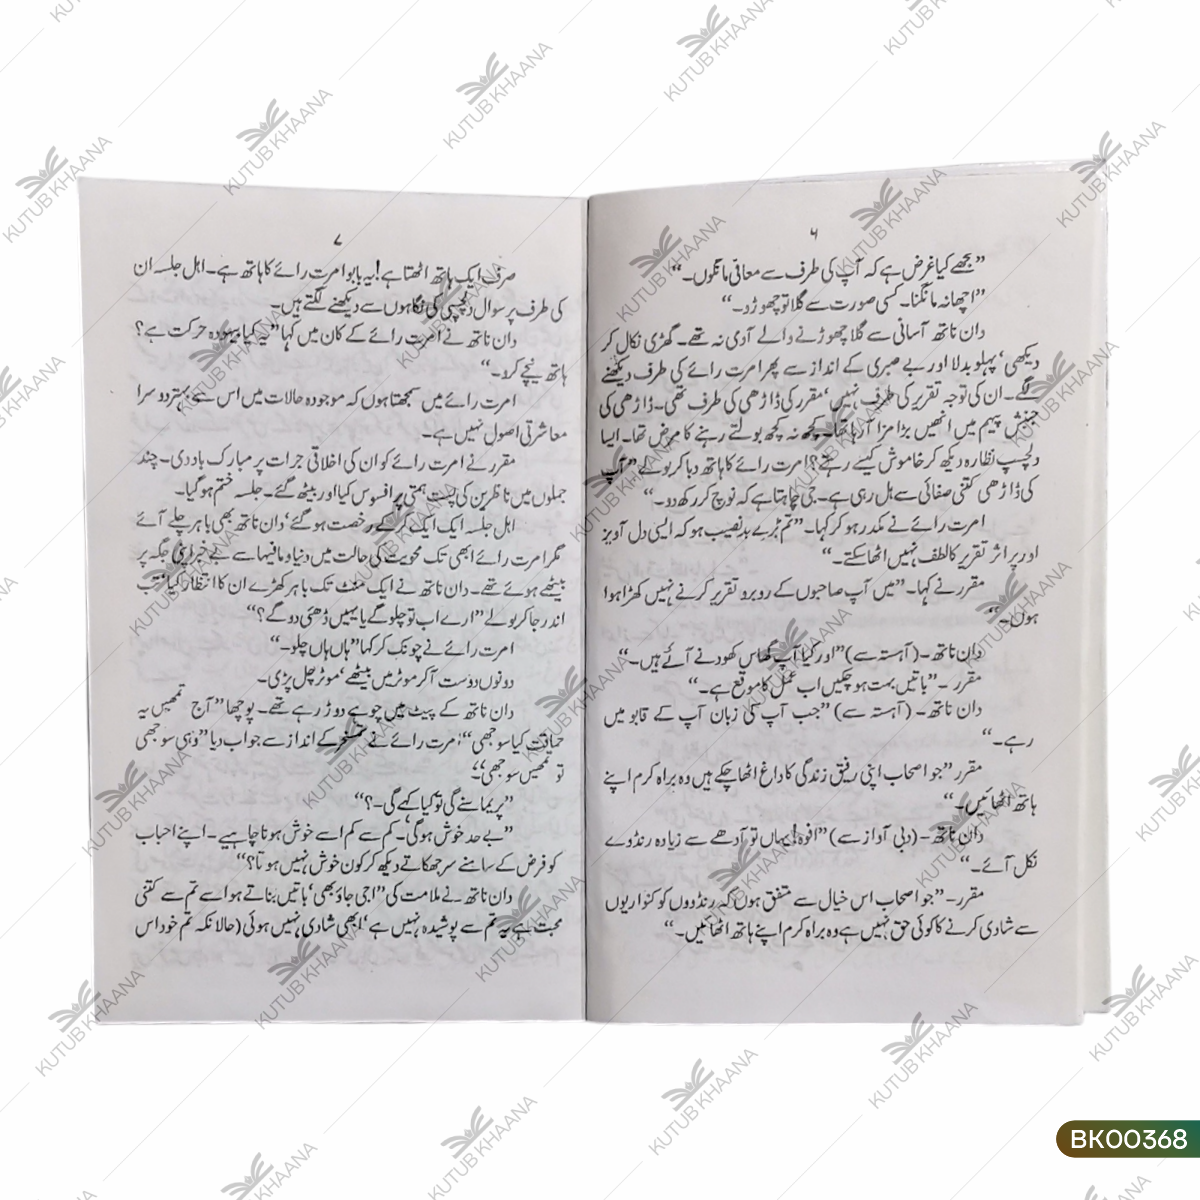 ۶
”مجھے کیا غرض ہے کہ آپ کی طرف سے معافی مانگوں۔“
”اچھا نہ مانگنا۔ کسی صورت سے گلا تو چھوڑو۔“
دان ناتھ آسانی سے گلا چھوڑنے والے آدمی نہ تھے۔ گھڑی نکال کر
دیکھی‘ پہلو بدلا اور بے صبری کے انداز سے پھر امرت رائے کی طرف دیکھنے
لگے۔ ان کی توجہ تقریر کی طرف نہیں‘ مقرر کی ڈاڑھی کی طرف تھی۔ ڈاڑھی کی
جنبش پیہم میں انھیں بڑا مزا آ رہا تھا۔ کچھ نہ کچھ بولتے رہنے کا مرض تھا۔ ایسا
دلچسپ نظارہ دیکھ کر خاموش کیسے رہتے؟ امرت رائے کا ہاتھ دبا کر بولے ”آپ
کی ڈاڑھی کتنی صفائی سے ہل رہی ہے۔ جی چاہتا ہے کہ نوچ کر رکھ دو۔“
امرت رائے نے مکدر ہو کر کہا۔ ”تم بڑے بدنصیب ہو کہ ایسی دل آویز
اور پر اثر تقریر کا لطف نہیں اٹھا سکتے۔“
مقرر نے کہا۔ ”میں آپ صاحبوں کے روبرو تقریر کرنے نہیں کھڑا ہوا
ہوں۔“
دان ناتھ۔ (آہستہ سے) ”اور کیا آپ گھاس کھودنے آئے ہیں۔“
مقرر ۔ ”باتیں بہت ہو چکیں اب عمل کا موقع ہے۔“
دان ناتھ۔ (آہستہ سے) ”جب آپ کی زبان آپ کے قابو میں
رہے۔“
مقرر ”جو اصحاب اپنی رفیق زندگی کا داغ اٹھا چکے ہیں وہ براہ کرم اپنے
ہاتھ اٹھائیں۔“
دان ناتھ۔ (دبی آواز سے) ”افوہ! یہاں تو آدھے سے زیادہ رنڈوے
نکل آئے۔“
مقرر۔ ”جو اصحاب اس خیال سے متفق ہوں کہ رنڈووں کو کنواریوں
سے شادی کرنے کا کوئی حق نہیں ہے وہ براہ کرم اپنے ہاتھ اٹھائیں۔“
۷
صرف ایک ہاتھ اٹھتا ہے! یہ بابو امرت رائے کا ہاتھ ہے۔ اہل جلسہ ان
کی طرف پر سوال دلچسپی کی نگاہوں سے دیکھنے لگتے ہیں۔
دان ناتھ نے امرت رائے کے کان میں کہا ”یہ کیا بیہودہ حرکت ہے؟
ہاتھ نیچے کرو۔“
امرت رائے میں سمجھتا ہوں کہ موجودہ حالات میں اس سے بہتر دوسرا
معاشرتی اصول نہیں ہے۔
مقرر نے امرت رائے کو ان کی اخلاقی جرات پر مبارک باد دی۔ چند
جملوں میں ناظرین کی پست ہمتی پر افسوس کیا اور بیٹھ گئے۔ جلسہ ختم ہو گیا۔
اہل جلسہ ایک ایک کر کے رخصت ہو گئے‘ دان ناتھ بھی باہر چلے آئے
مگر امرت رائے ابھی تک محویت کی حالت میں دنیا و مافیہا سے بے خبر اپنی جگہ پر
بیٹھے ہوئے تھے۔ دان ناتھ نے ایک منٹ تک باہر کھڑے ان کا انتظار کیا‘ تب
اندر جا کر بولے ”ارے اب تو چلو گے یا یہیں ڈھئی دو گے؟“
امرت رائے نے چونک کر کہا ”ہاں ہاں چلو۔“
دونوں دوست آ کر موٹر میں بیٹھے‘ موٹر چل پڑی۔
دان ناتھ کے پیٹ میں چوہے دوڑ رہے تھے۔ پوچھا ”آج تمھیں یہ
حماقت کیا سوجھی“ امرت رائے نے تمسخر کے انداز سے جواب دیا ”وہی سوجھی
تو تمھیں سوجھی۔“
”پریما سنے گی تو کیا کہے گی۔؟“
”بے حد خوش ہو گی۔ کم سے کم اسے خوش ہونا چاہیے۔ اپنے احباب
کو فرض کے سامنے سر جھکاتے دیکھ کر کون خوش نہیں ہوتا؟“
دان ناتھ نے ملامت کی ”اجی جاؤ بھی‘ باتیں بناتے ہو اسے تم سے کتنی
محبت ہے یہ تم سے پوشیدہ نہیں ہے‘ ابھی شادی نہیں ہوئی (حالانکہ تم خود اس
KUTUB KHAANA
BK00368